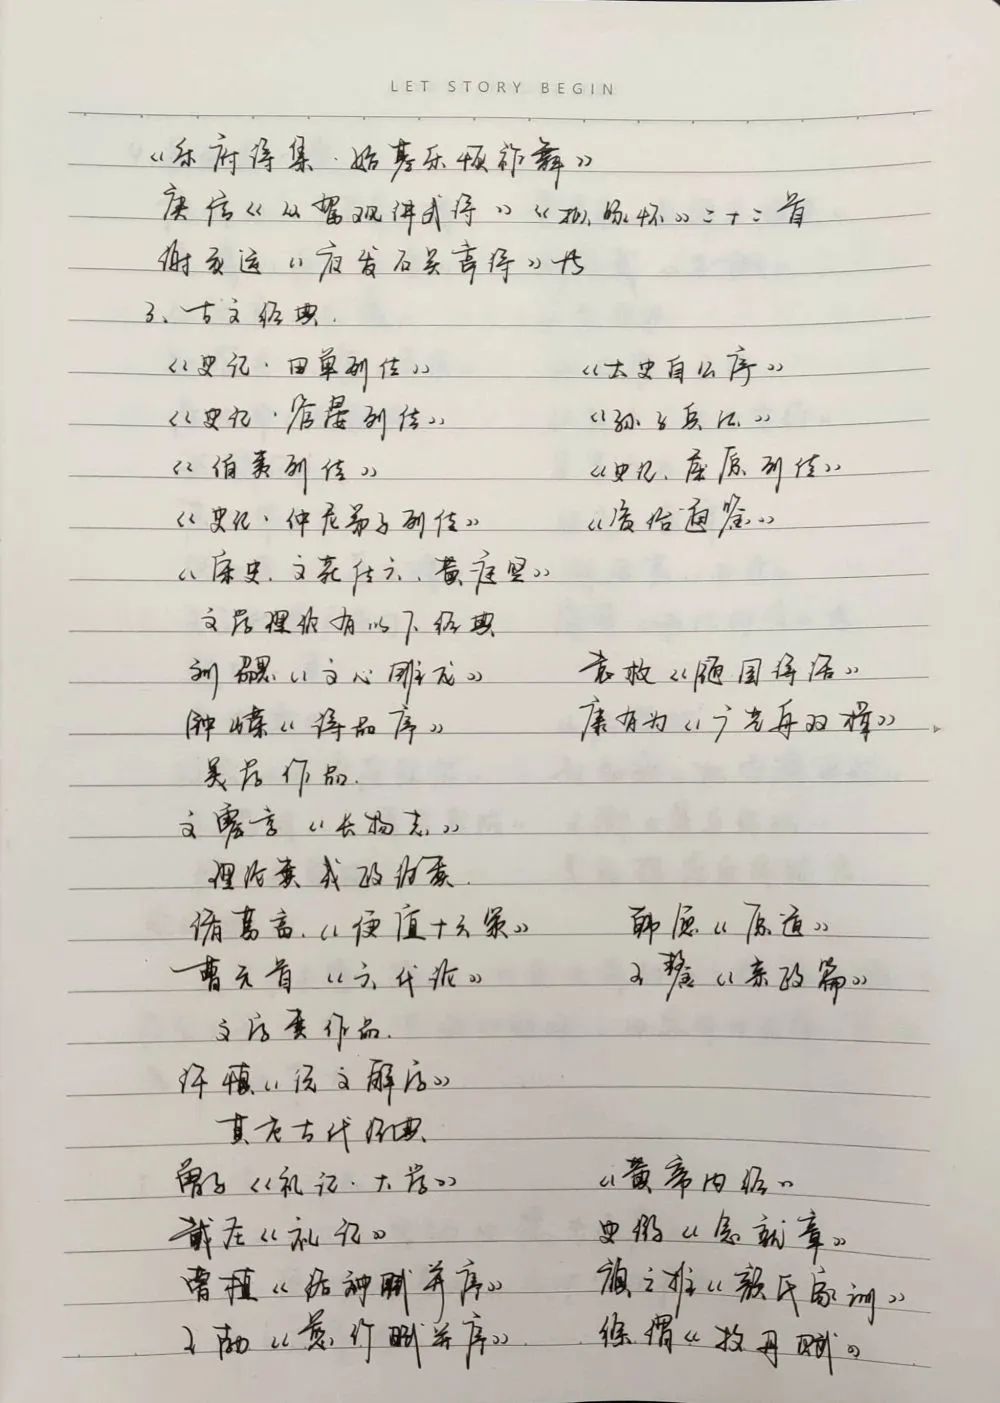 LET STORY BEGIN
《乐府诗集·始基乐颂祚舞》
庾信《从驾观讲武诗》《拟咏怀》二十二首
谢灵运《夜发石关亭诗》等
3、古文经典.
《史记·田单列传》 《太史自公序》
《史记·管晏列传》 《孙子兵法》
《伯夷列传》 《史记、屈原列传》
《史记·仲尼弟子列传》 《资治通鉴》
《宋史.文苑传六.黄庭坚》
文学理论有以下经典
刘勰《文心雕龙》 袁枚《随园诗话》
钟嵘《诗品序》 康有为《广艺舟双楫》
美学作品.
文震亨《长物志》
理论类或政治类.
诸葛亮.《便宜十六策》 韩愈《原道》
曹元首《六代论》 王鏊《亲政篇》
文字类作品.
许慎《说文解字》
其它古代经典
曾子《礼记·大学》 《黄帝内经》
戴圣《礼记》 史游《急就章》
曹植《洛神赋并序》 颜之推《颜氏家训》
王勃《慈竹赋并序》 徐渭《牡丹赋》